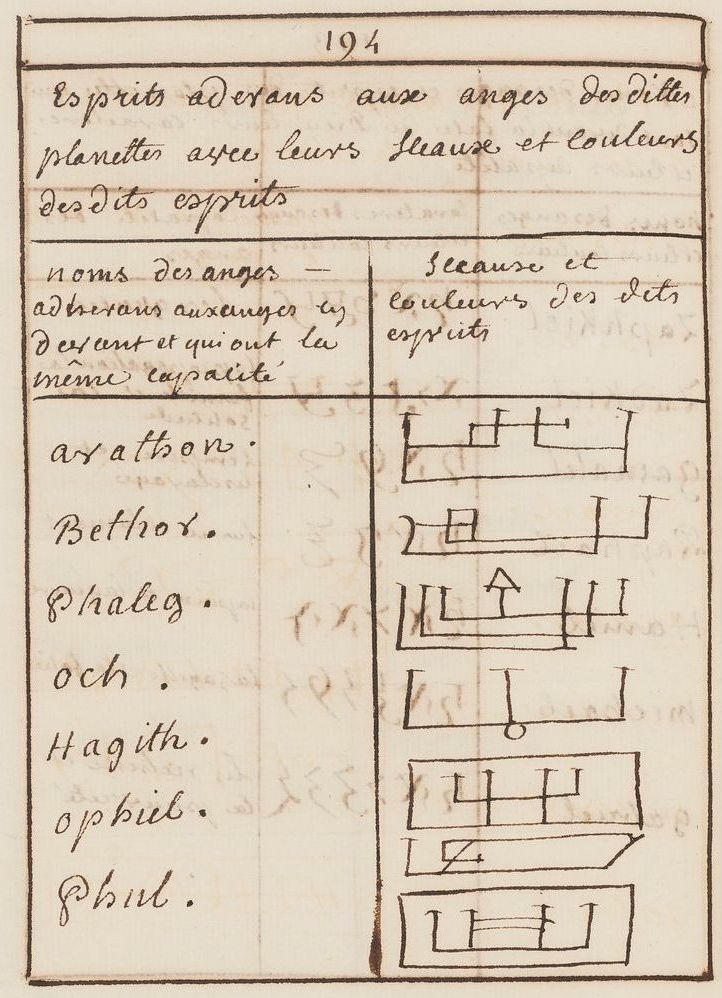 194
Esprits aderans aux anges desdittes
planettes avec leurs Sceaux et Couleurs
desdits esprits
noms des anges —
adherans aux anges cy
devant et qui ont la
même capacité
Sceaux et
Couleurs des dits
esprits
arathon.
Bethor.
Phaleg.
och.
Hagith.
ophiel.
Phul.